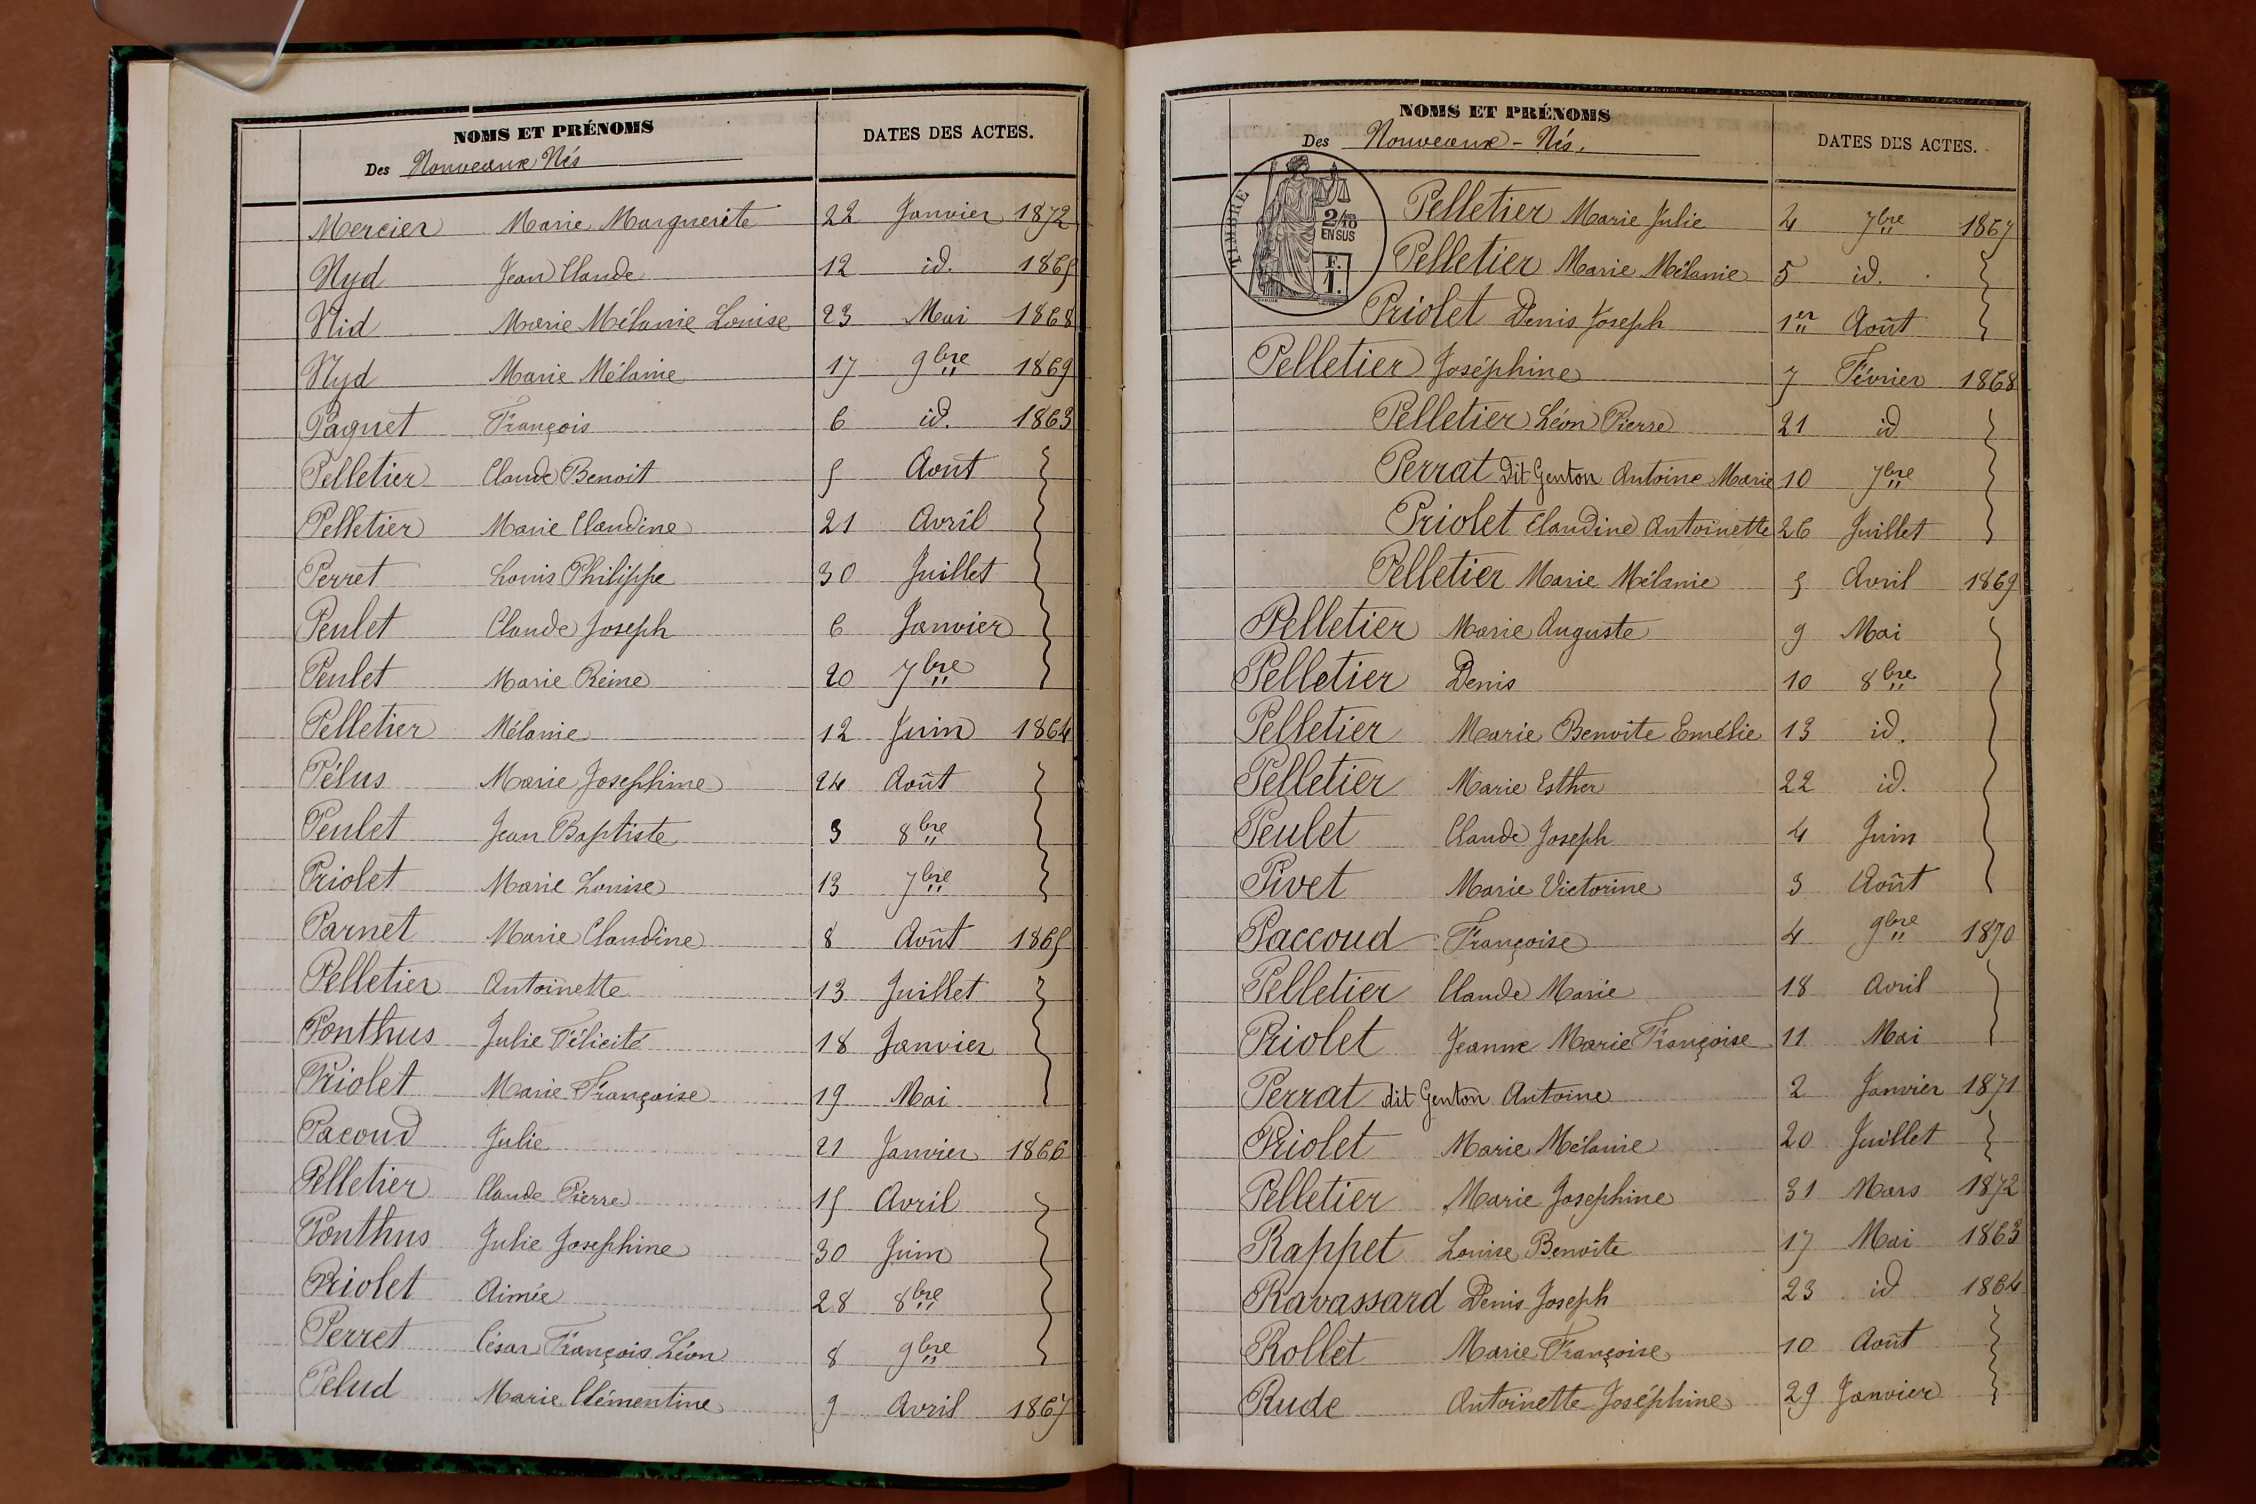 NOMS ET PRÉNOMS
DATES DES ACTES.
Des Nouveaux Nés
Mercier Marie Marguerite 22 Janvier 1872
Nyd Jean Claude 12 id. 1865
Nid Marie Mélanie Louise 23 Mai 1868
Nyd Marie Mélanie 17 9bre 1869
Paquet François 6 id. 1863
Pelletier Claude Benoit 5 Aout
Pelletier Marie Claudine 21 Avril
Perret Louis Philippe 30 Juillet
Peulet Claude Joseph 6 Janvier
Peulet Marie Reine 20 7bre
Pelletier Mélanie 12 Juin 1864
Pélus Marie Josephine 24 Août
Peulet Jean Baptiste 3 8bre
Priolet Marie Louise 13 7bre
Parnet Marie Claudine 8 Août 1865
Pelletier Antoinette 13 Juillet
Ponthus Julie Félicité 18 Janvier
Priolet Marie Françoise 19 Mai
Pacoud Julie 21 Janvier 1866
Pelletier Claude Pierre 15 Avril
Ponthus Julie Josephine 30 Juin
Priolet Aimée 28 8bre
Perret César François Léon 8 9bre
Pelud Marie Clémentine 9 Avril 1867
NOMS ET PRÉNOMS
Des Nouveaux-Nés.
DATES DES ACTES.
TIMBRE
2/10
EN SUS
F.
1.
Pelletier Marie Julie 4 7bre 1867
Pelletier Marie Mélanie 5 id.
Priolet Denis Joseph 1er Août
Pelletier Joséphine 7 Février 1868
Pelletier Léon Pierre 21 id
Perrat dit Genton Antoine Marie 10 7bre
Priolet Claudine Antoinette 26 Juillet
Pelletier Marie Mélanie 5 Avril 1869
Pelletier Marie Auguste 9 Mai
Pelletier Denis 10 8bre
Pelletier Marie Benoite Emélie 13 id.
Pelletier Marie Esther 22 id.
Peulet Claude Joseph 4 Juin
Pivet Marie Victorine 3 Août
Paccoud Françoise 4 9bre 1870
Pelletier Claude Marie 18 Avril
Priolet Jeanne Marie Françoise 11 Mai
Perrat dit Genton Antoine 2 Janvier 1871
Priolet Marie Mélanie 20 Juillet
Pelletier Marie Josephine 31 Mars 1872
Rappet Louise Benoite 17 Mai 1863
Ravassard Denis Joseph 23 id 1864
Rollet Marie Françoise 10 Août
Rude Antoinette Joséphine 29 Janvier